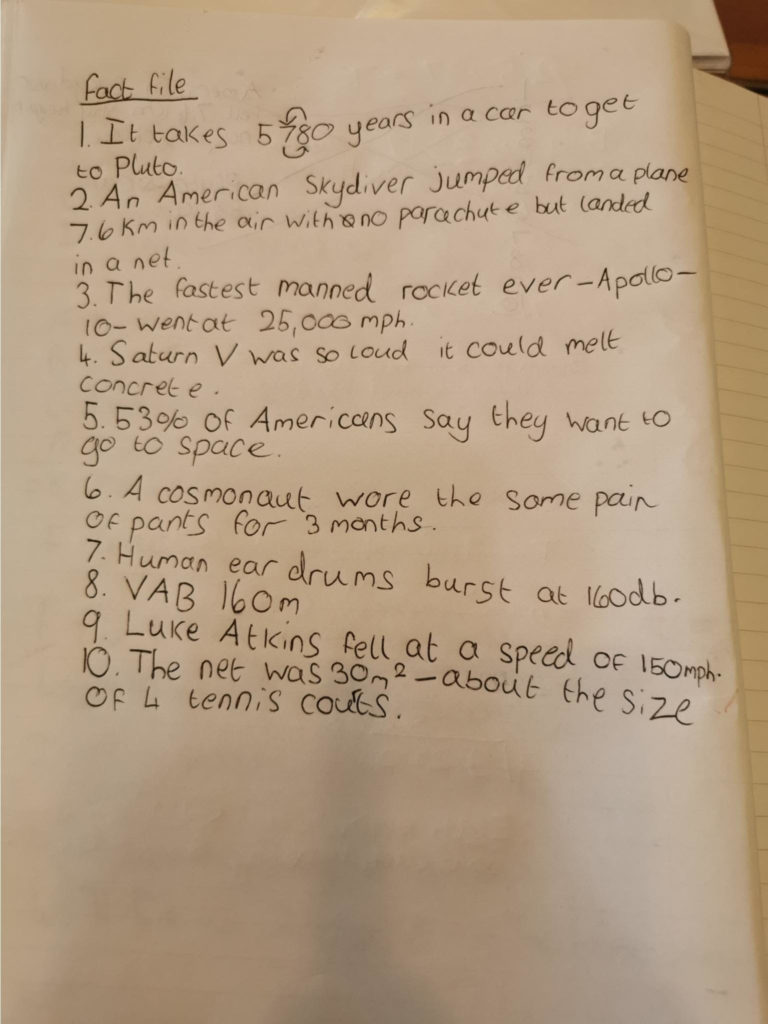 Fact File
1. It takes 5780 years in a car to get
to Pluto.
2. An American Skydiver jumped from a plane
7.6 Km in the air with no parachute but landed
in a net.
3. The fastest manned rocket ever - Apollo -
10 - went at 25,000 mph.
4. Saturn V was so loud it could melt
concrete.
5. 53% of Americans say they want to
go to space.
6. A cosmonaut wore the same pair
of pants for 3 months.
7. Human ear drums burst at 160db.
8. VAB 160m
9. Luke Atkins fell at a speed of 150mph.
10. The net was 30m² - about the size
of 4 tennis couts.